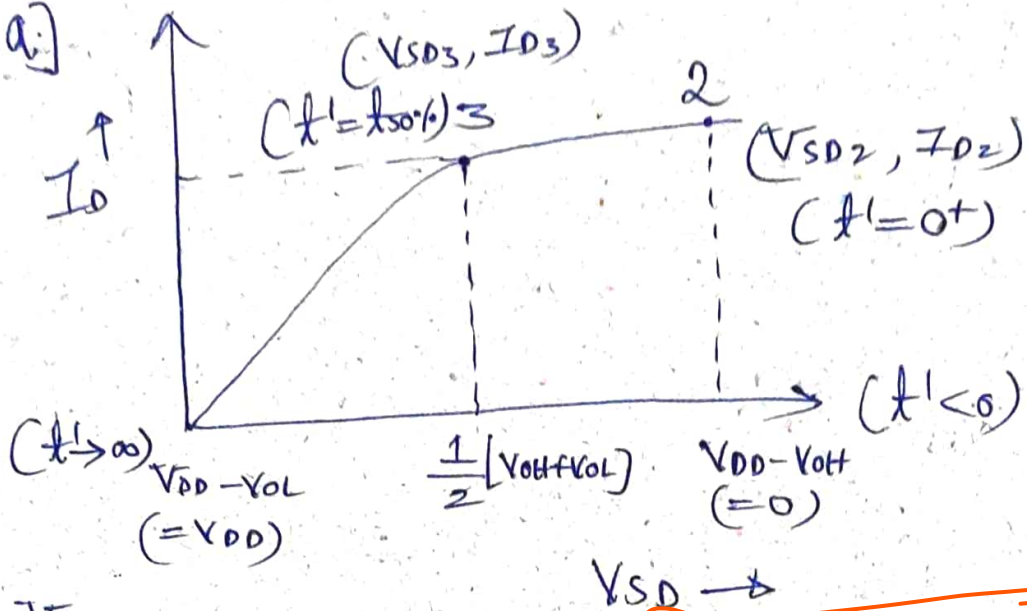 a.]
(VSD3, ID3)
(t'=t50%) 3
2
ID ↑
(VSD2, ID2)
(t'=0+)
(t'<0)
(t'→∞)
VDD-VOL
(=VDD)
1/2 [VOH+VOL]
VDD-VOH
(=0)
VSD →